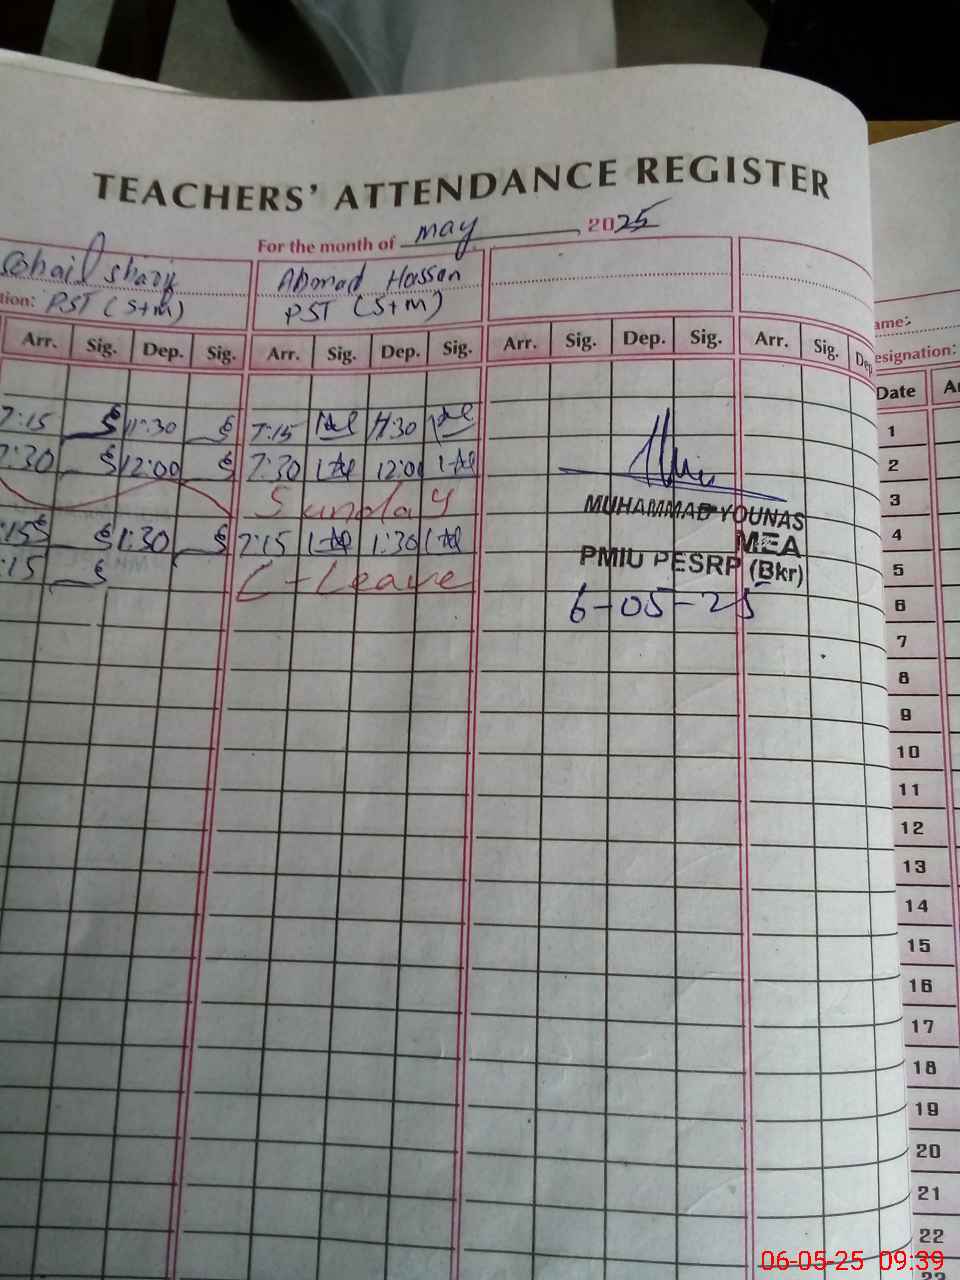 TEACHERS' ATTENDANCE REGISTER
For the month of may 2025
Ahmad Hassan
tion: PST (S+M) PST (S+M)
Arr. Sig. Dep. Sig. Arr. Sig. Dep. Sig. Arr. Sig. Dep. Sig. Arr. Sig. Dep
7:15 11:30 7:15 11:30
7:30 12:00 7:30 12:00
Sunday
:15 1:30 7:15 1:30
:15 L-Leave
MUHAMMAD YOUNAS
MEA
PMIU PESRP (Bkr)
6-05-25
ame:
esignation:
Date A
1
2
3
4
5
6
7
8
9
10
11
12
13
14
15
16
17
18
19
20
21
22
23
06-05-25 09:39